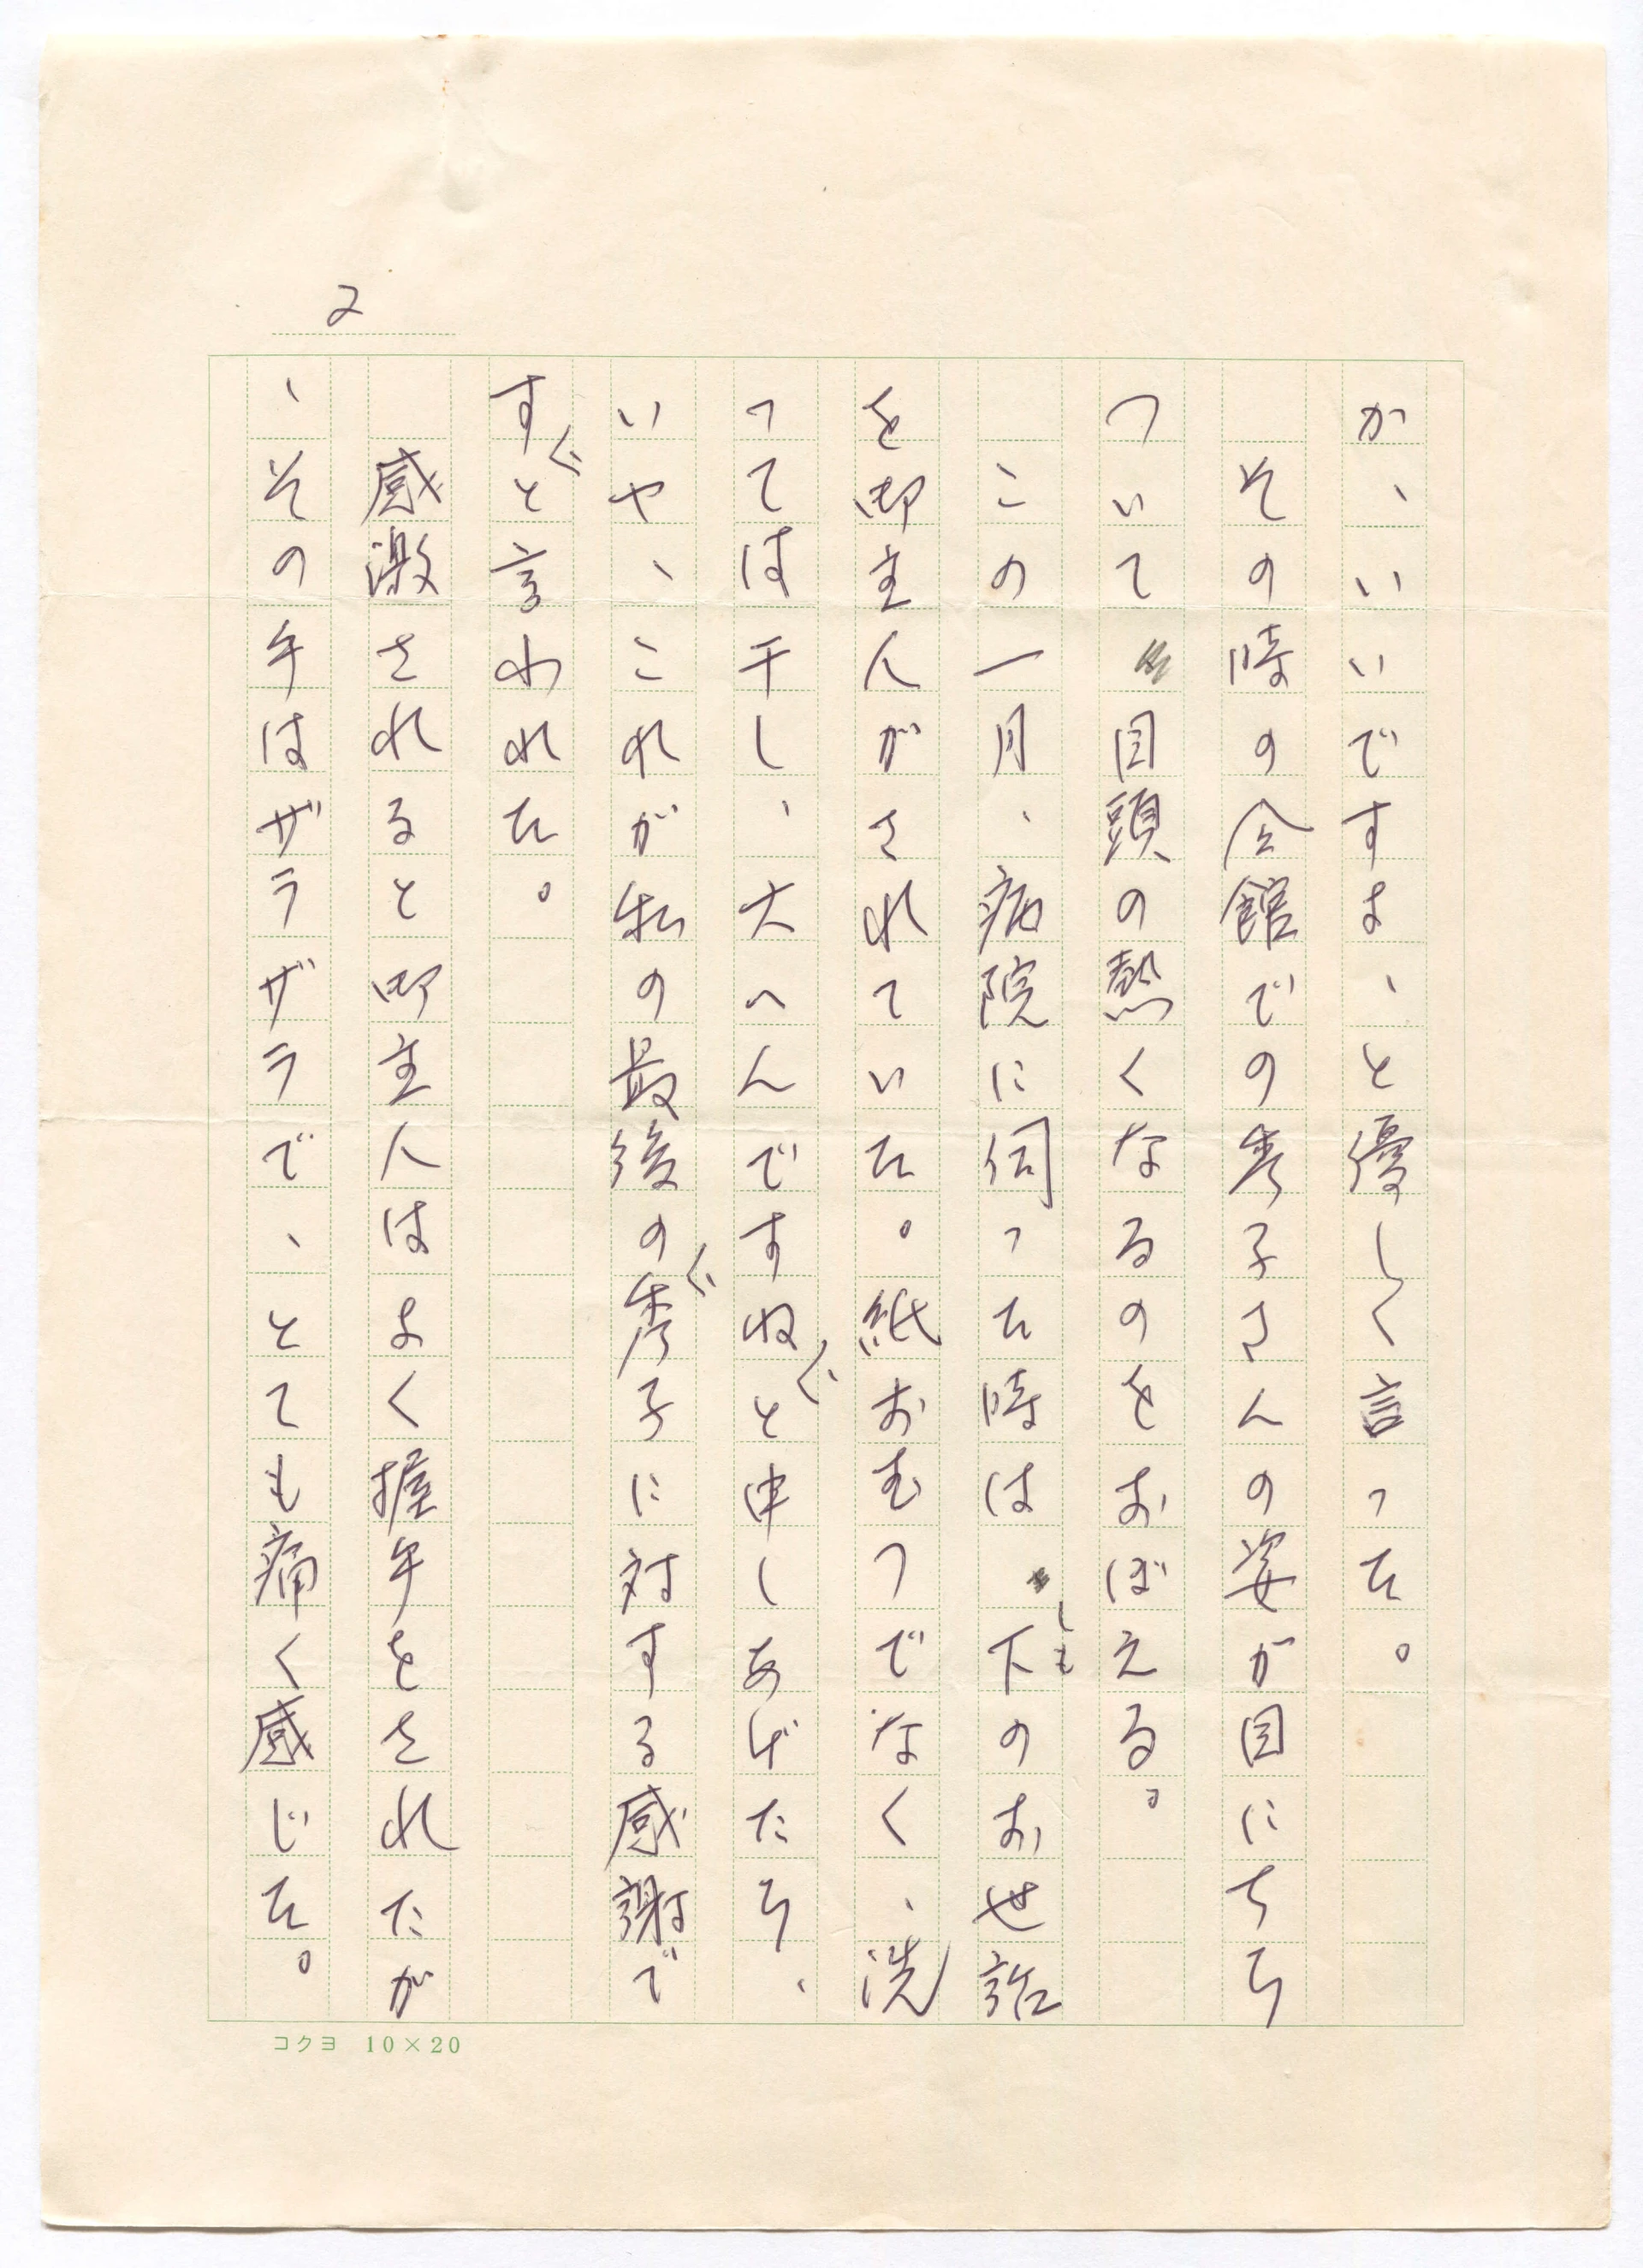 2
か、いいですよ、と優しく言った。
その時の会館での秀子さんの姿が目にちら
ついて目頭の熱くなるのをおぼえる。
この一月、病院に伺った時は下のお世話
しも
を御主人がされていた。紙おむつでなく、洗
っては干し、大へんですねと申しあげたら、
いや、これが私の最後の秀子に対する感謝で
すと言われた。
感激されると御主人はよく握手をされたが
、その手はザラザラで、とても痛く感じた。
コクヨ 10×20